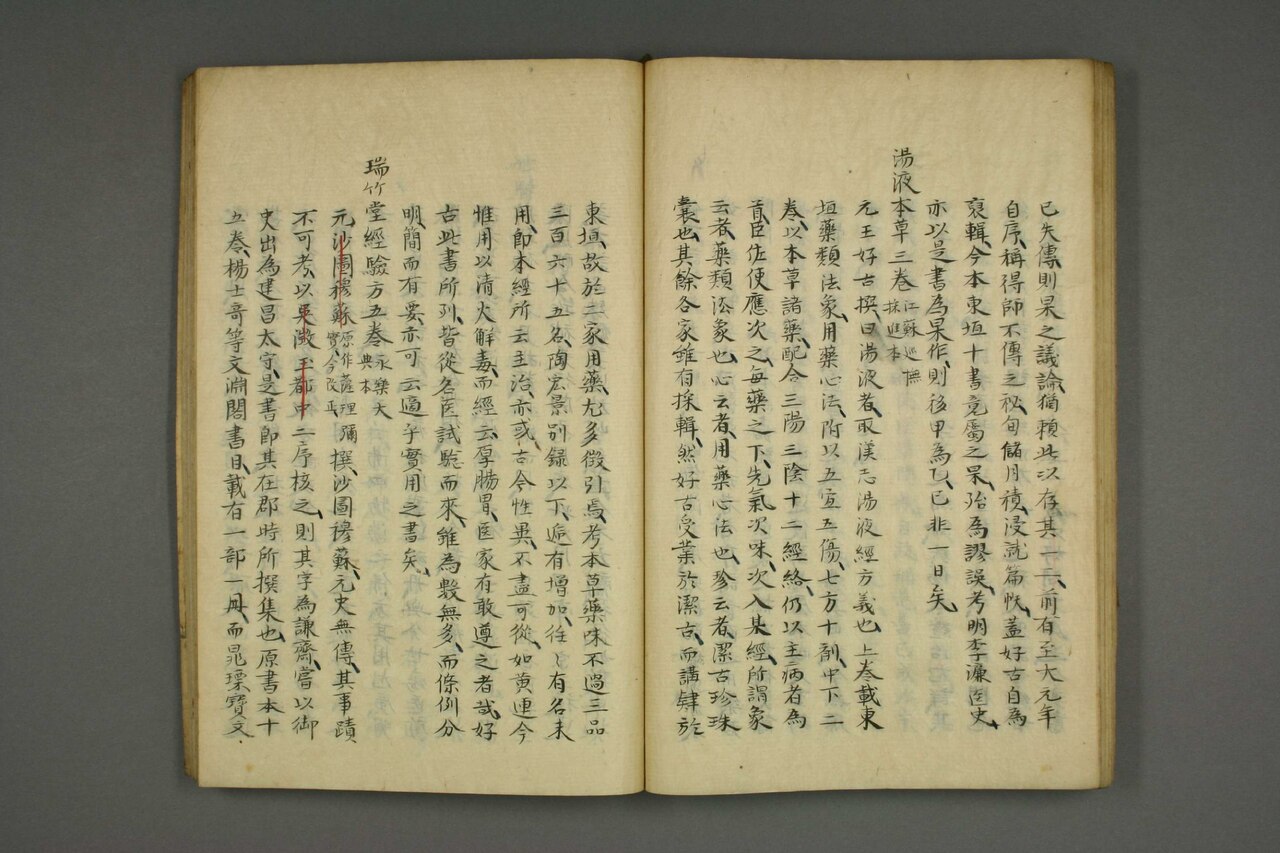 已失傳則杲之議論猶賴此以存其一二前有至大元年
自序稱得師不傳之祕旬儲月積浸就篇帙蓋好古自為
裒輯今本東垣十書竟屬之杲殆為謬誤考明李濂医史
亦以是書為杲作則移甲為乙已非一日矣
湯液本草三巻江蘇巡撫
採進本
元王好古撰曰湯液者取漢志湯液經方義也上巻載東
垣藥類法象用藥心法附以五宜五傷七方十剤中下二
巻以本草諸藥配合三陽三陰十二經絡仍以主病者為
首臣佐使應次之毎藥之下先氣次味次入某經所謂象
云者藥類法象也心云者用藥心法也珍云者潔古珍珠
囊也其餘各家雖有採輯然好古受業於潔古而講肄於
東垣故於二家用藥尤多徴引焉考本草藥味不過三品
三百六十五名陶宏景別録以下逓有増加往〻有名未
用即本經所云主治亦或古今性異不盡可從如黄連今
惟用以清火解毒而經云厚腸胃医家有敢遵之者哉好
古此書所列皆從名医試驗而來雖為數無多而條例分
明簡而有要亦可云適乎實用之書矣
瑞竹堂經驗方五巻永樂大
典本
元沙圖穆蘇原作薩理
實今改正彌撰沙圖穆蘇元史無傳其事蹟
不可考以吳澂王都中二序核之則其字為謙齋嘗以御
史出為建昌太守是書即其在郡時所撰集也原書本十
五巻楊士奇等文淵閣書目載有一部一冊而晁瑮寶文